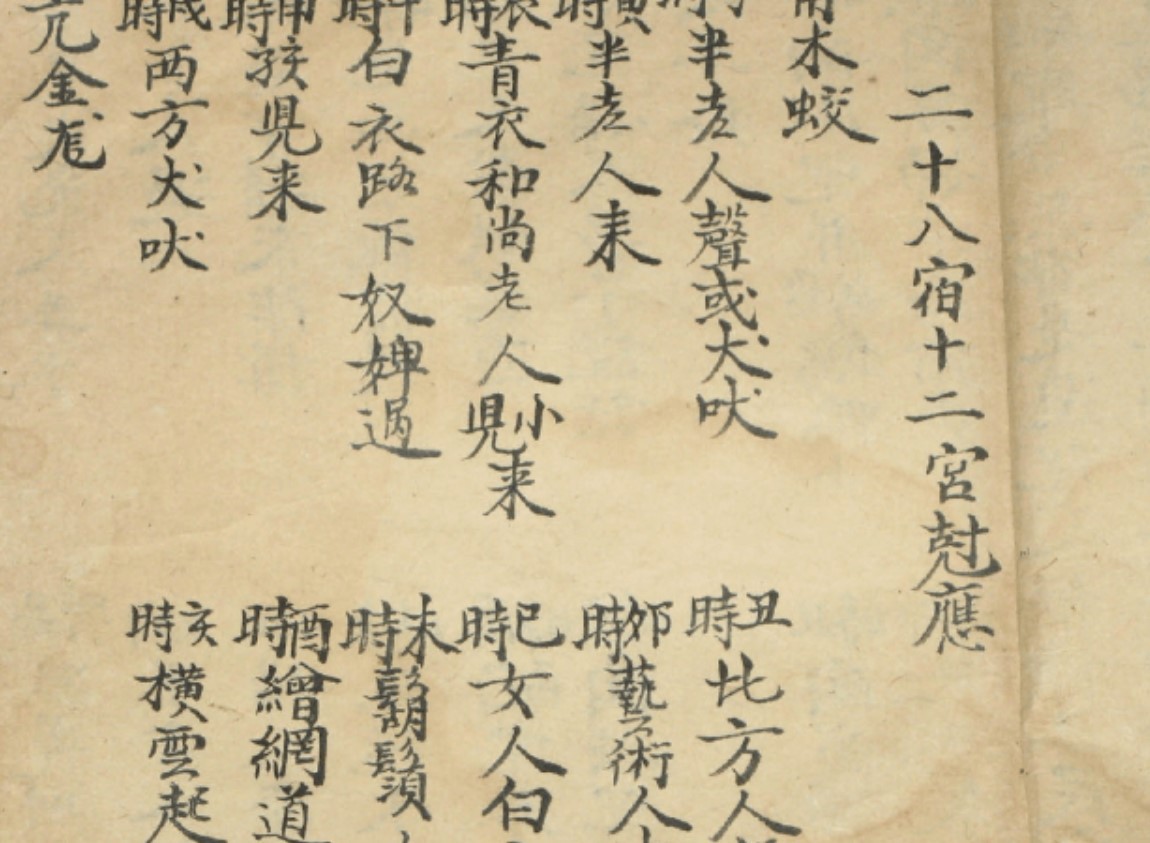 二十八宿十二宮尅應
角木蛟
時半老人聲或犬吠
丑時北方人
寅時半老人来
卯時藝術人
辰時青衣和尚老人小児来
巳時女人白
午時白衣路下奴婢過
未時鬍鬚
申時孩児来
酉時繒網道
戌時両方犬吠
亥時横雲起
亢金龍